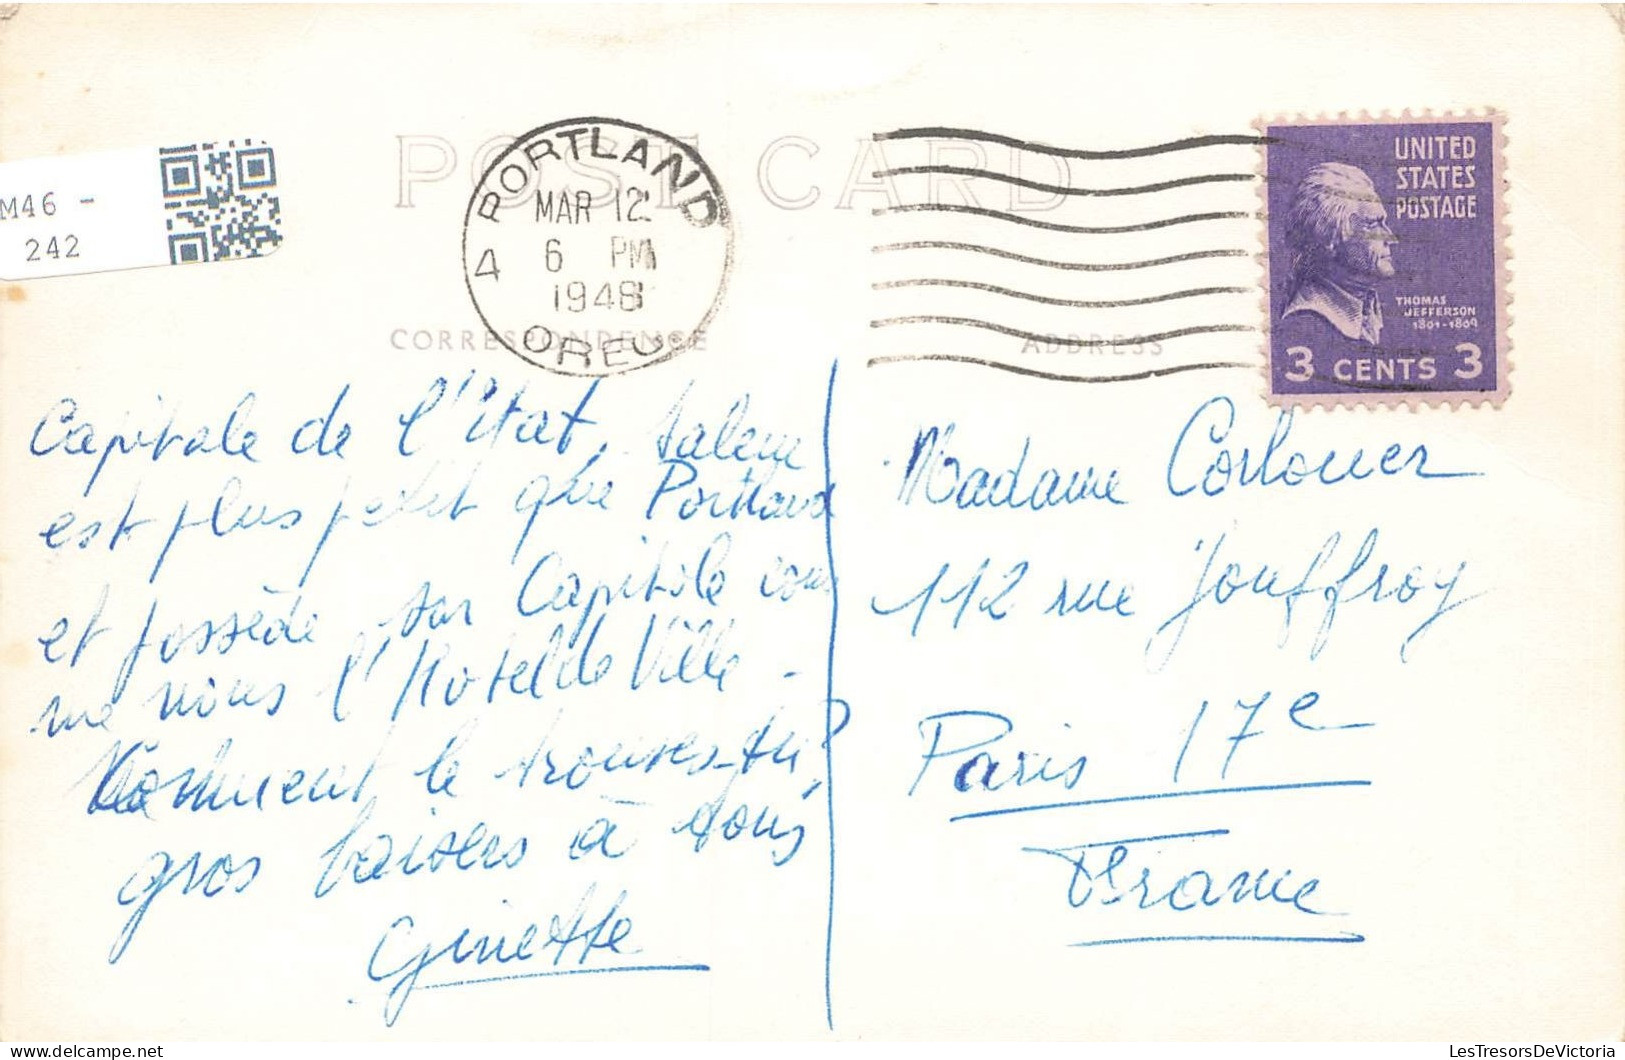 POST CARD
4 PORTLAND
MAR 12
6 PM
1948
OREG
UNITED
STATES
POSTAGE
THOMAS
JEFFERSON
1801-1809
3 CENTS 3
M46 -
242
CORRESPONDENCE
ADDRESS
Capitale de l'état, Salem
est plus petit que Portland
et possède son Capitole com
me nous l'Hotel de Ville -
Comment le trouves-tu?
gros baisers à tous
Ginette
Madame Corlouer
112 rue Jouffroy
Paris 17e
France
LesTresorsDeVictoria
delcampe.net